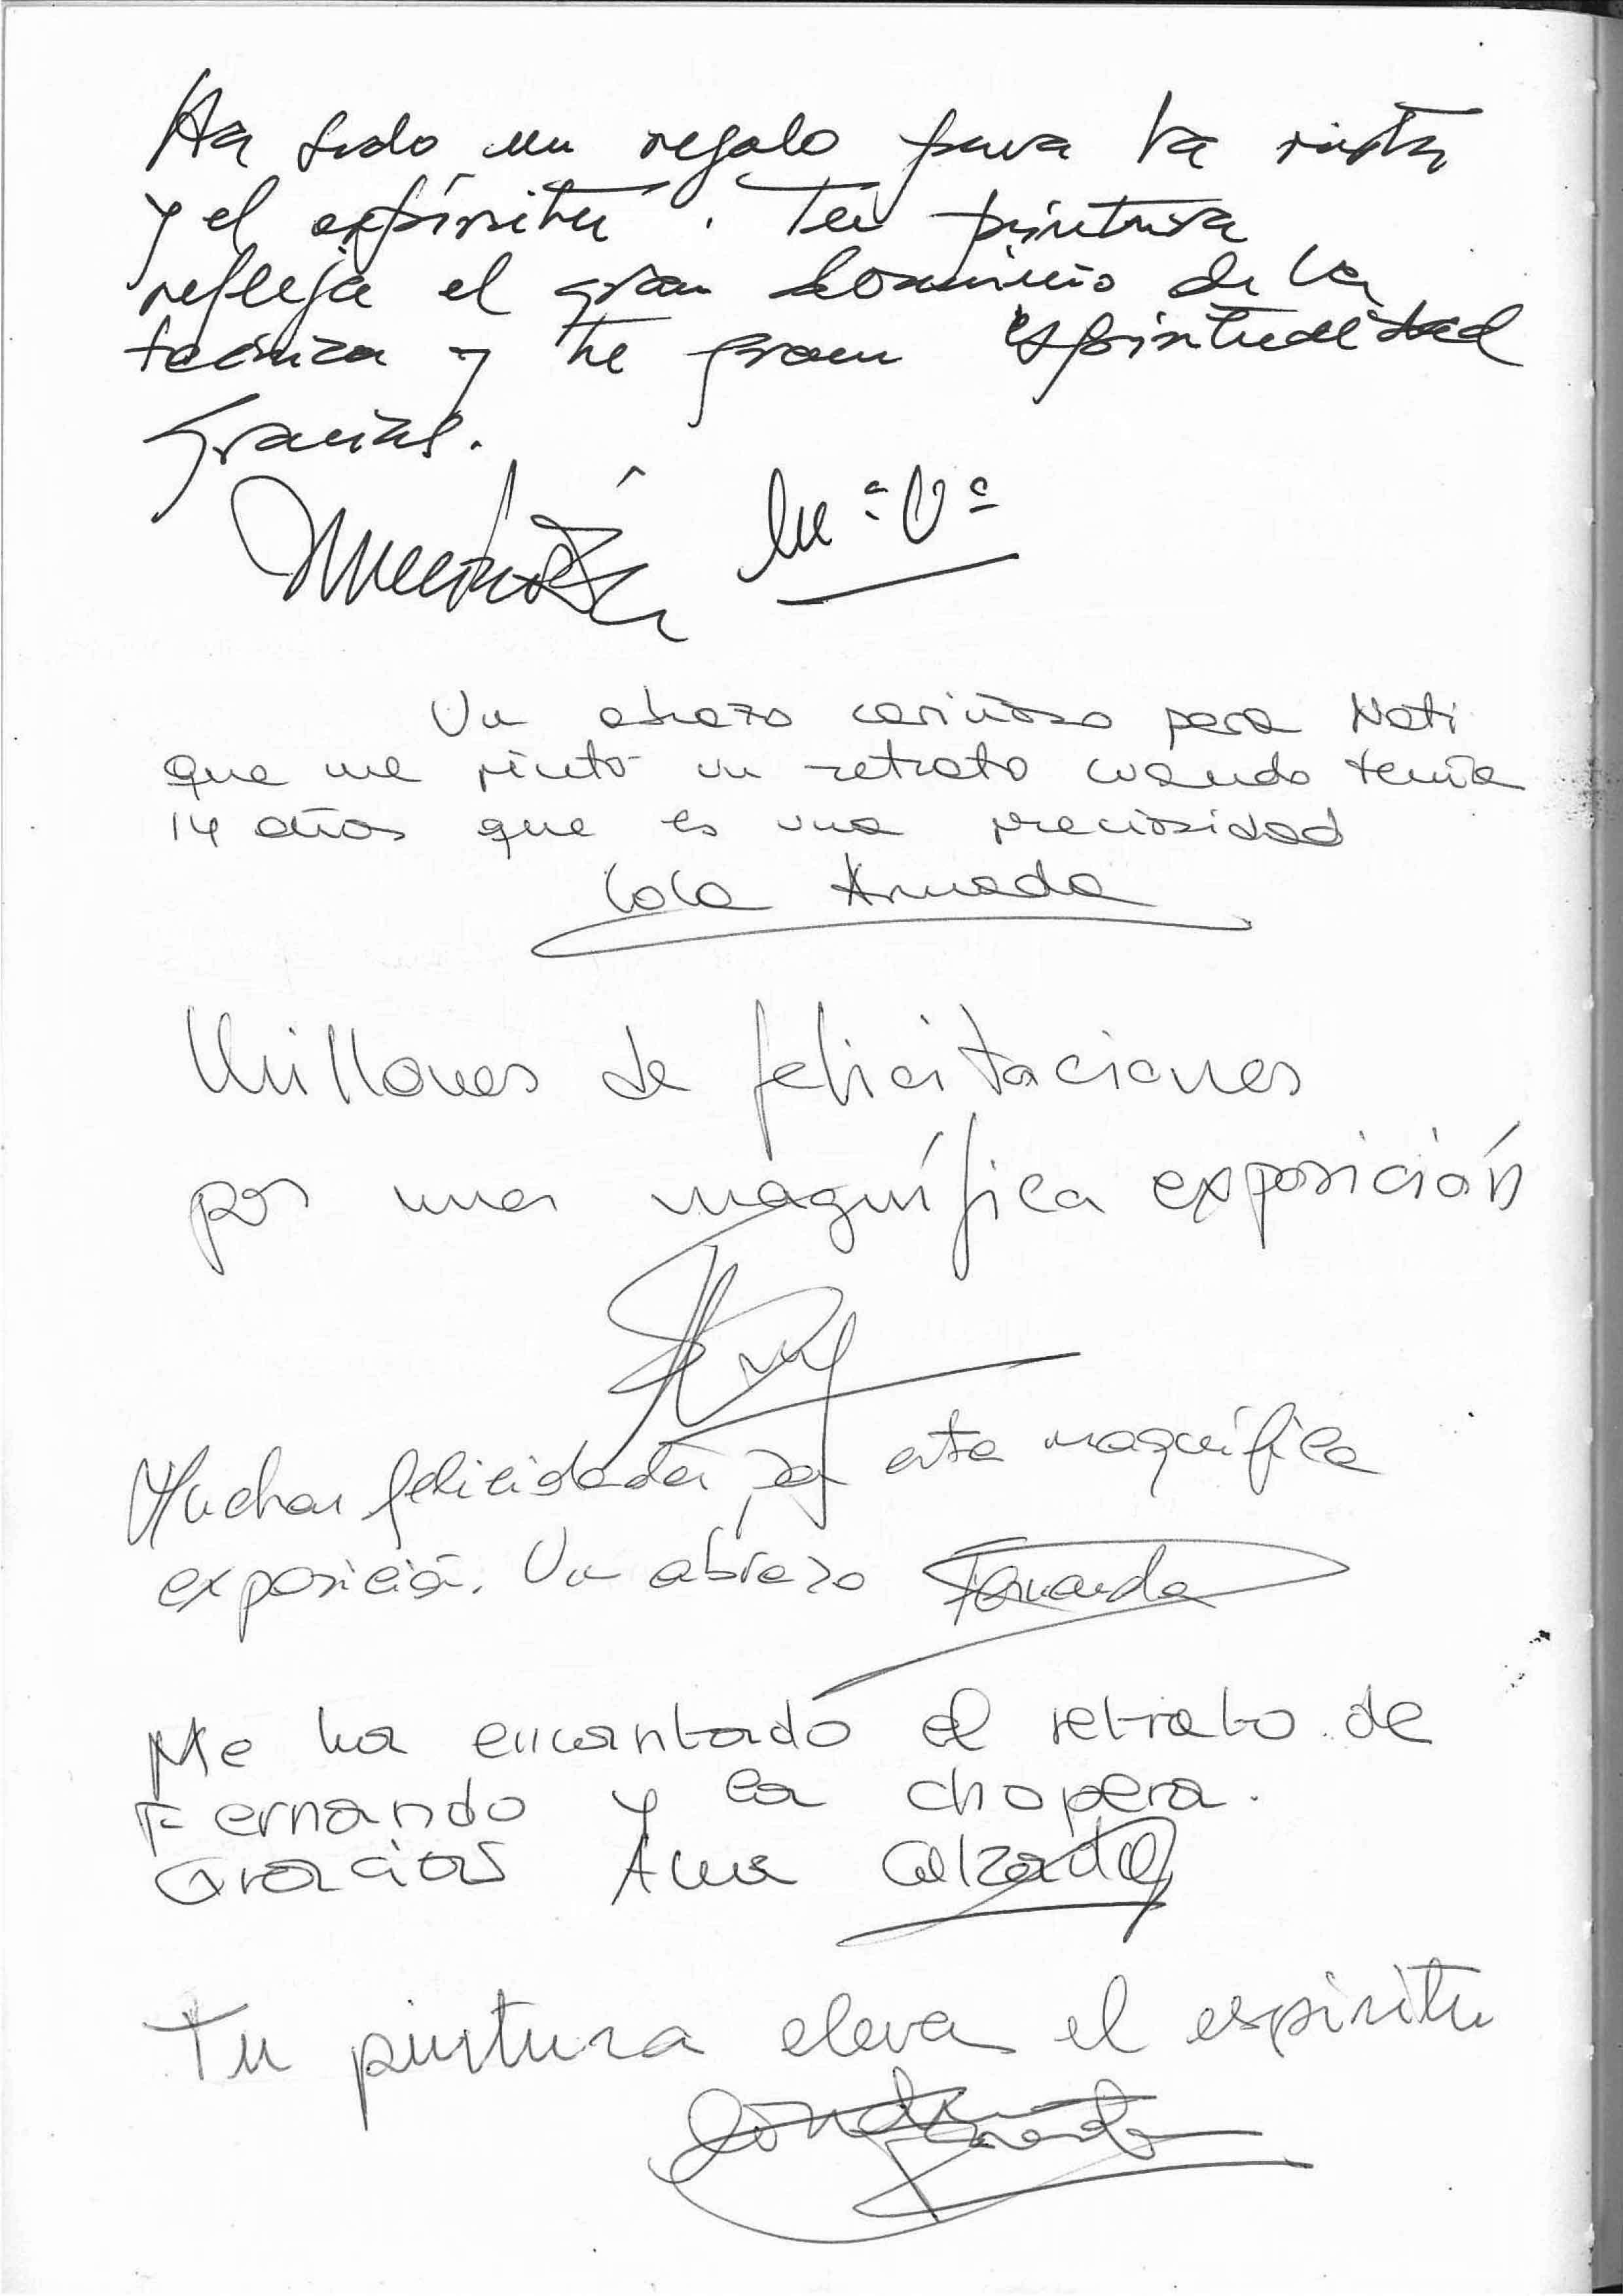 Ha sido un regalo para la vista
y el espíritu. Tu pintura
refleja el gran dominio de la
técnica y tu gran espiritualidad
Gracias.
Mª Vª
Un abrazo cariñoso para Nati
que me pintó un retrato cuando tenía
14 años que es una preciosidad
Lola Armada
Millones de felicitaciones
por una magnífica exposición
Muchas felicidades por esta magnífica
exposición. Un abrazo Fernanda
Me ha encantado el retrato de
Fernando y la chopera.
Gracias Ana Calzada
Tu pintura eleva el espíritu